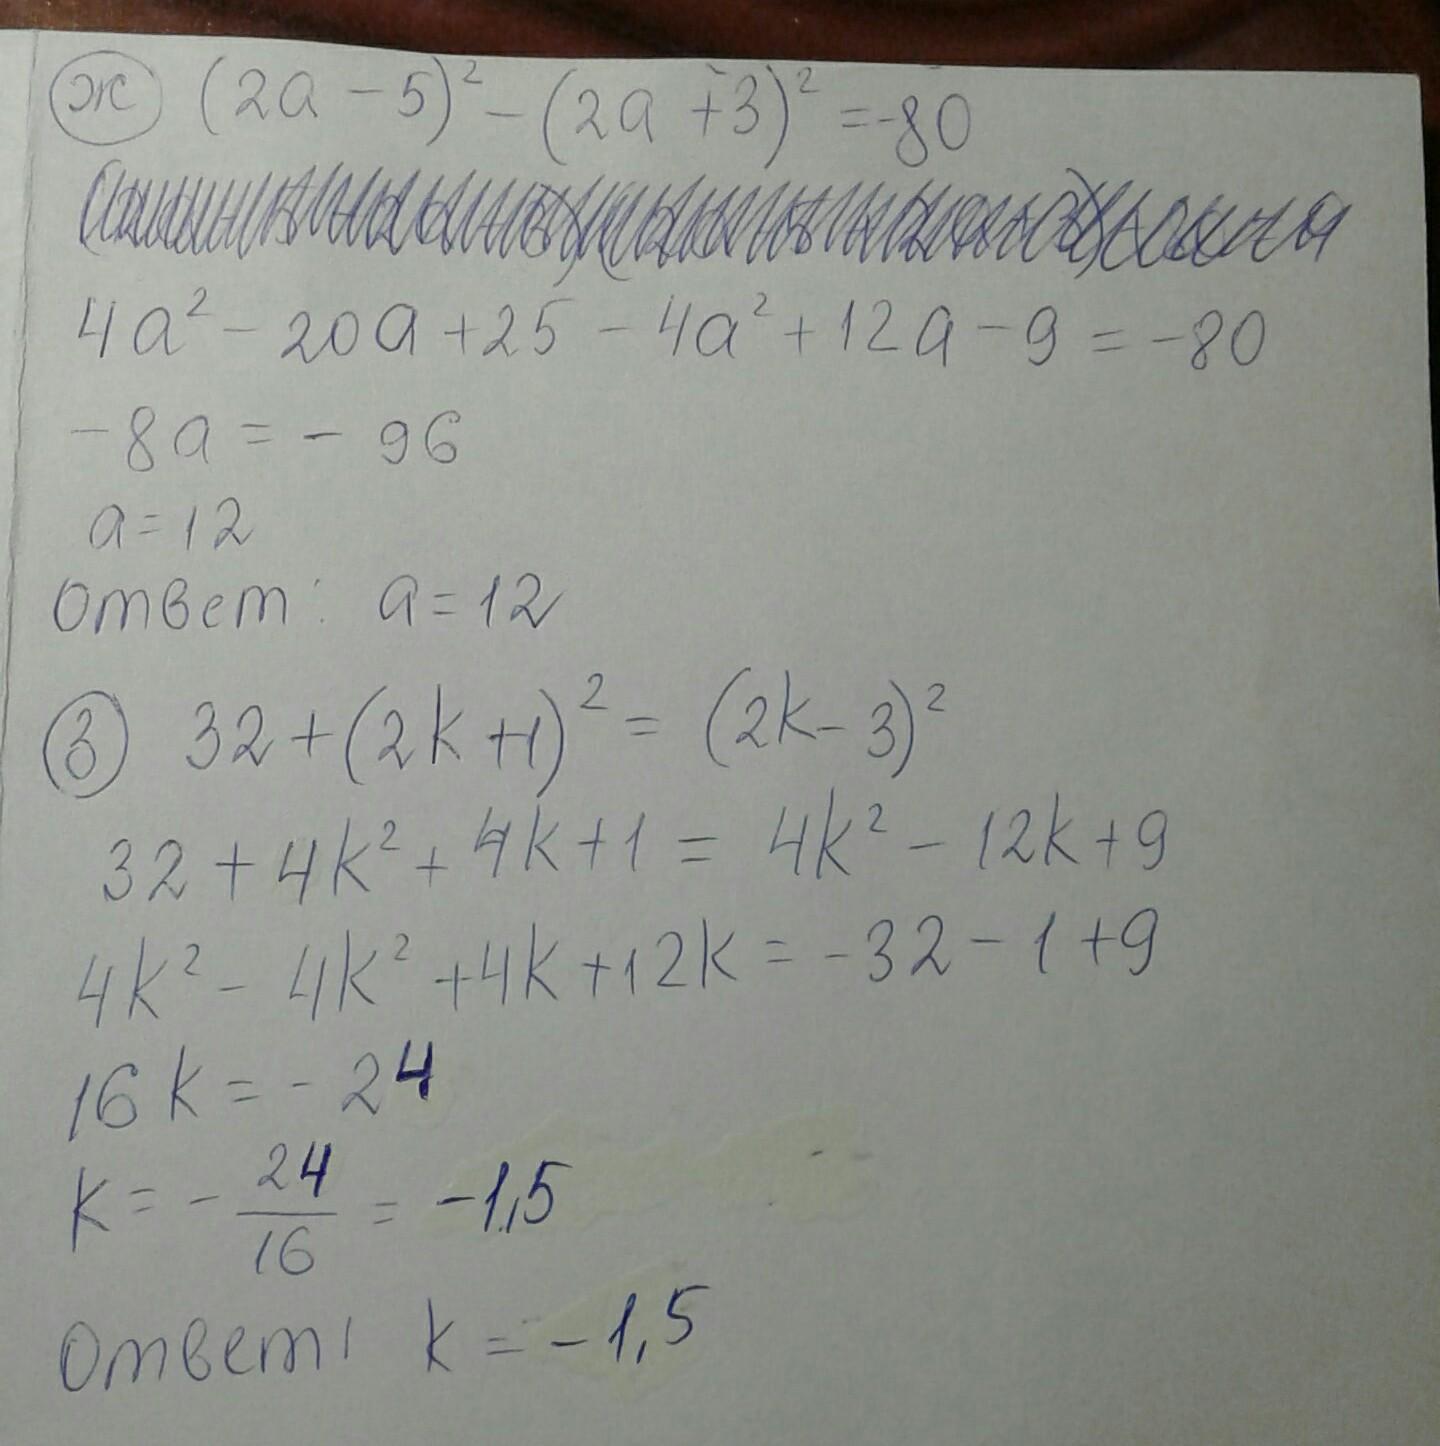 ж (2a - 5)² - (2a + 3)² = -80
4a² - 20a + 25 - 4a² + 12a - 9 = -80
-8a = - 96
a = 12
Ответ: a = 12
з 32 + (2k + 1)² = (2k - 3)²
32 + 4k² + 4k + 1 = 4k² - 12k + 9
4k² - 4k² + 4k + 12k = -32 - 1 + 9
16k = - 24
k = - 24/16 = -1,5
Ответ: k = -1,5